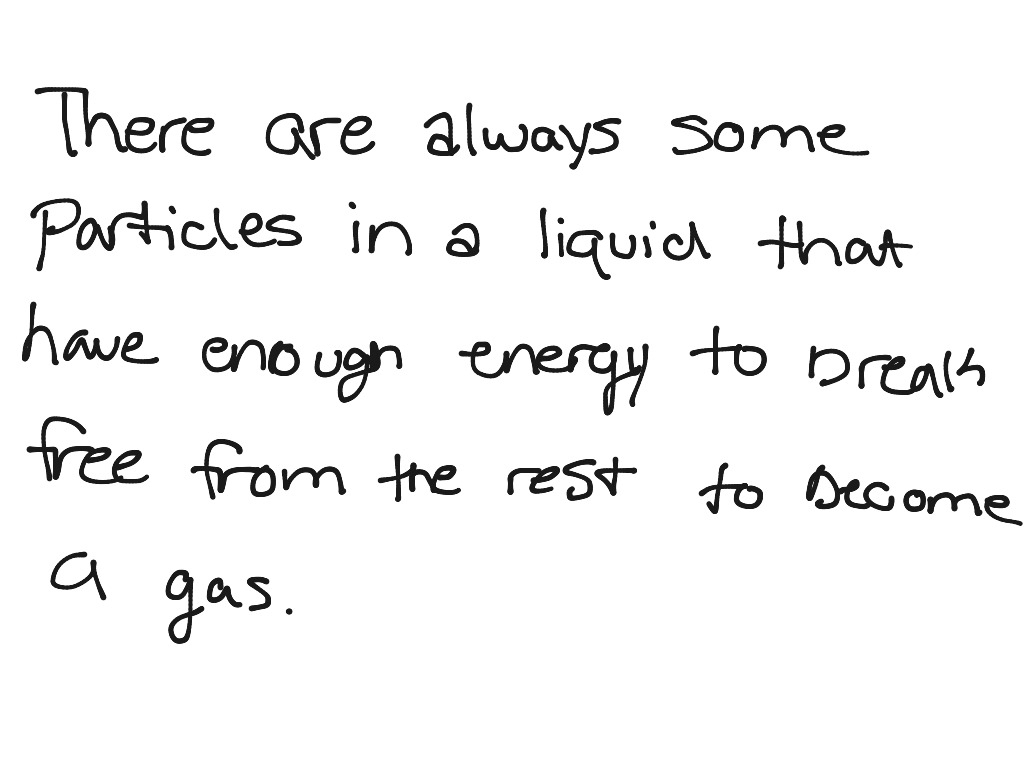 There are always some
Particles in a liquid that
have enough energy to break
free from the rest to become
a gas.